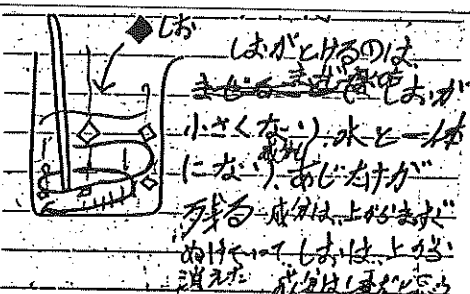 しお
しおがとけるのは、
しおが
小さくなり、水と一体
になり、あじだけが
残る 成分は、上からまっすぐ
ぬけていって、しおは、上から
消えた 成分は